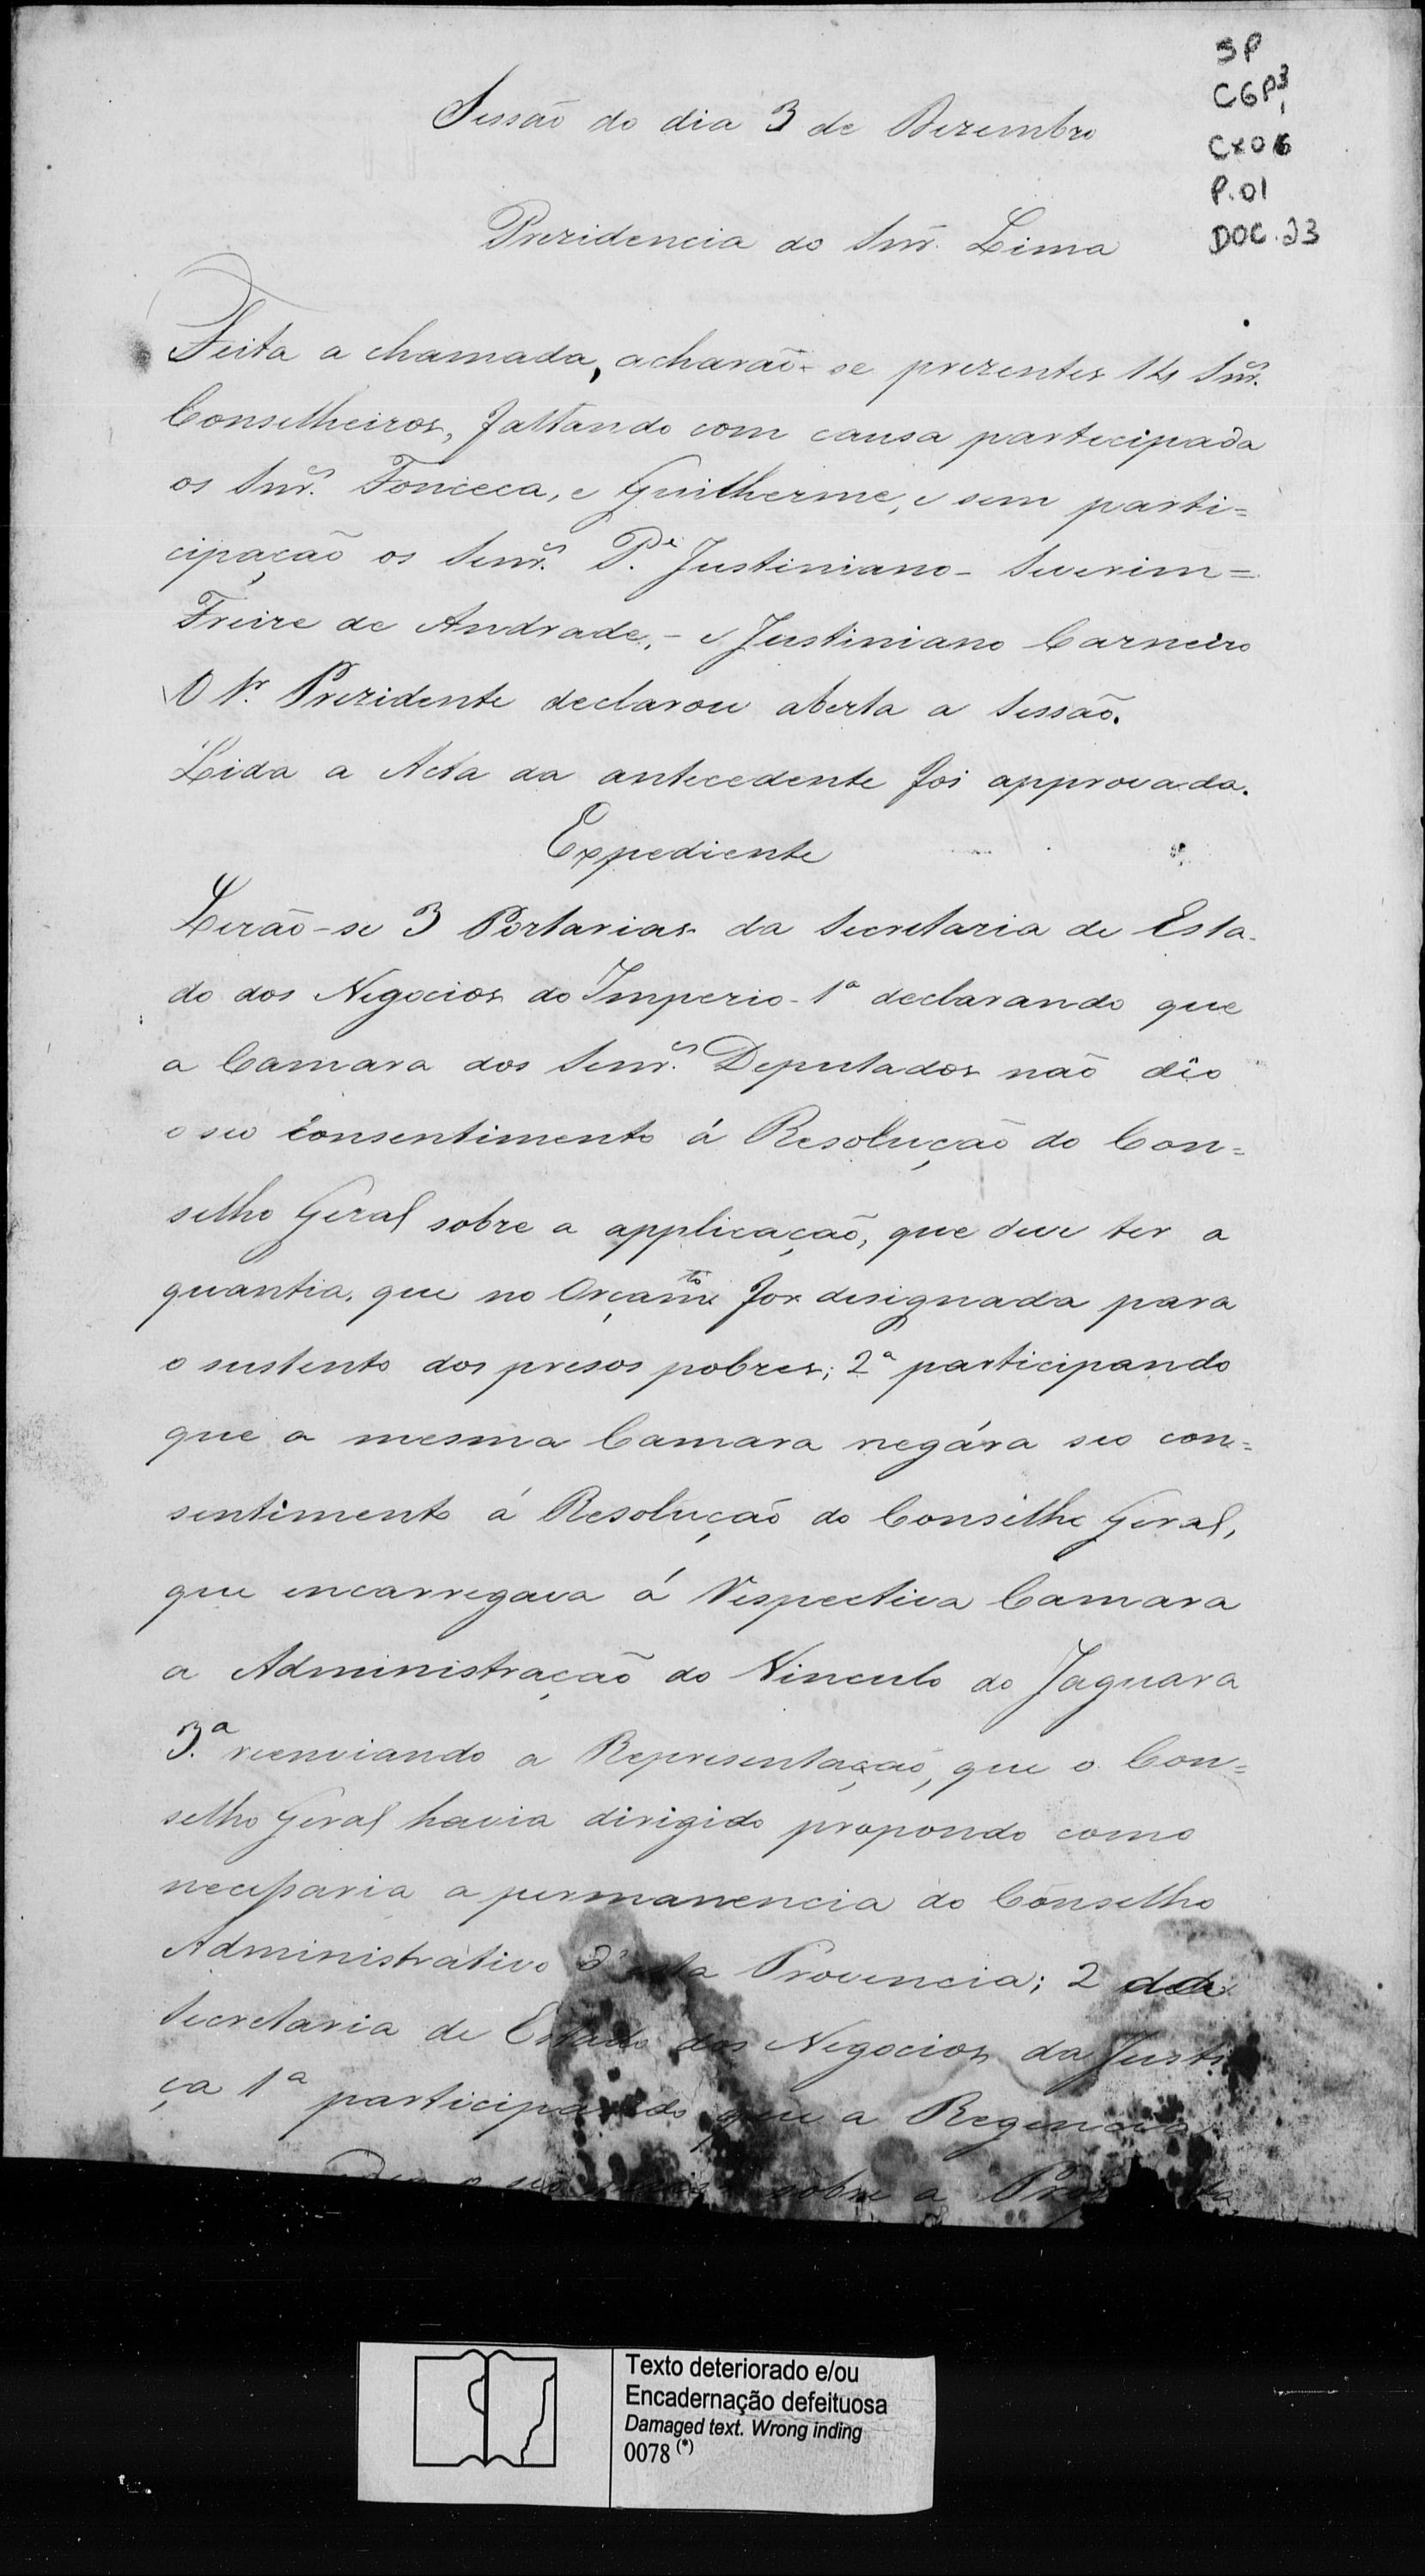 SP
CGP³,
CX06
P.01
DOC. 23
Sessão do dia 3 de Dezembro
Prezidencia do Snr. Lima
Feita a chamada, acharão-se prezentes 14 Snr.es
Conselheiros, faltando com causa partecipada
os Snr.es Fonceca, e Guilherme, e sem parti=
cipação os Senr.es P.e Justiniano - Severim=
Freire de Andrade, - e Justiniano Carneiro
O Sr. Prezidente declarou aberta a Sessão.
Lida a Acta da antecedente foi approvada.
Expediente
Lerão-se 3 Portarias da Secretaria de Esta-
do dos Negocios do Imperio - 1ª declarando que
a Camara dos Senr.es Deputados não dêo
o seo consentimento á Resolução do Con=
selho Geral sobre a applicação, que deve ter a
quantia, que no Orçam.to for designada para
o sustento dos presos pobres; 2ª participando
que a mesma Camara negára seo con=
sentimento á Resolução do Conselho Geral,
que encarregava á Respectiva Camara
a Administração do Vinculo do Jaguara
3.ª reenviando a Representação, que o Con=
selho Geral havia dirigido propondo como
necessaria a permanencia do Conselho
Administrativo d'esta Provencia; 2 da
Secretaria de Estado dos Negocios da Justi
ça 1ª participando que a Regencia
o seo sobre a
Texto deteriorado e/ou
Encadernação defeituosa
Damaged text. Wrong inding
0078 (*)